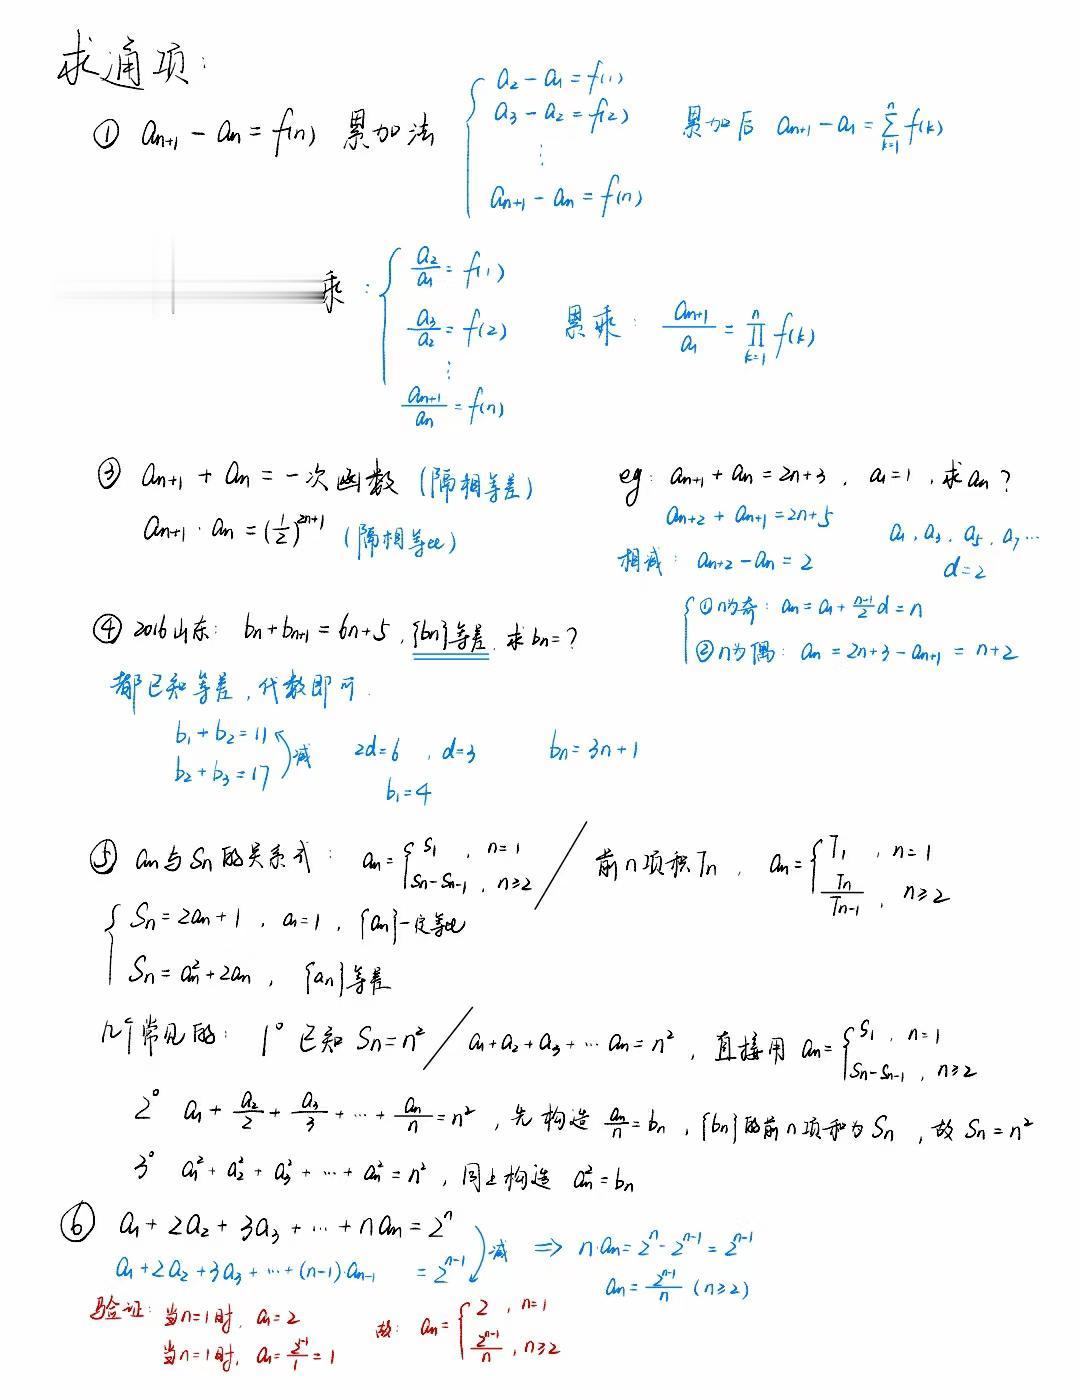 求通项:
① aₙ₊₁ - aₙ = f(n) 累加法 { a₂ - a₁ = f(1)
a₃ - a₂ = f(2)
⋮
aₙ₊₁ - aₙ = f(n)
累加后 aₙ₊₁ - a₁ = ∑ₖ₌₁ⁿ f(k)
乘: { a₂/a₁ = f(1)
a₃/a₂ = f(2)
⋮
aₙ₊₁/aₙ = f(n)
累乘: aₙ₊₁/a₁ = ∏ₖ₌₁ⁿ f(k)
③ aₙ₊₁ + aₙ = 一次函数 (隔相等差)
aₙ₊₁ · aₙ = (1/2)²ⁿ⁺¹ (隔相等比)
eg: aₙ₊₁ + aₙ = 2n+3, a₁=1, 求aₙ?
aₙ₊₂ + aₙ₊₁ = 2n+5
相减: aₙ₊₂ - aₙ = 2
a₁, a₃, a₅, a₇ ⋯
d=2
{ ①n为奇: aₙ = a₁ + (n-1)/2 d = n
②n为偶: aₙ = 2n+3 - aₙ₊₁ = n+2
④ 2016山东: bₙ + bₙ₊₁ = 6n+5, {bₙ}等差, 求bₙ=?
都已知等差, 代数即可.
b₁ + b₂ = 11
b₂ + b₃ = 17
减 2d=6, d=3 bₙ = 3n+1
b₁=4
⑤ aₙ与Sₙ的关系式: aₙ = { S₁, n=1
Sₙ - Sₙ₋₁, n≥2
/ 前n项积Tₙ, aₙ = { T₁, n=1
Tₙ/Tₙ₋₁, n≥2
{ Sₙ = 2aₙ+1, a₁=1, {aₙ}一定等比
Sₙ = aₙ² + 2aₙ, {aₙ}等差
几个常见的: 1° 已知 Sₙ=n² / a₁+a₂+a₃+⋯aₙ=n², 直接用 aₙ = { S₁, n=1
Sₙ - Sₙ₋₁, n≥2
2° a₁ + a₂/2 + a₃/3 + ⋯ + aₙ/n = n², 先构造 aₙ/n = bₙ, {bₙ}的前n项和为Sₙ, 故Sₙ=n²
3° a₁² + a₂² + a₃² + ⋯ + aₙ² = n², 同上构造 aₙ² = bₙ
⑥ a₁ + 2a₂ + 3a₃ + ⋯ + naₙ = 2ⁿ
a₁ + 2a₂ + 3a₃ + ⋯ + (n-1)·aₙ₋₁ = 2ⁿ⁻¹
减 ⟹ n·aₙ = 2ⁿ - 2ⁿ⁻¹ = 2ⁿ⁻¹
aₙ = 2ⁿ⁻¹/n (n≥2)
验证: 当n=1时, a₁=2
当n=1时, a₁ = 2¹⁻¹/1 = 1
故: aₙ = { 2, n=1
2ⁿ⁻¹/n, n≥2